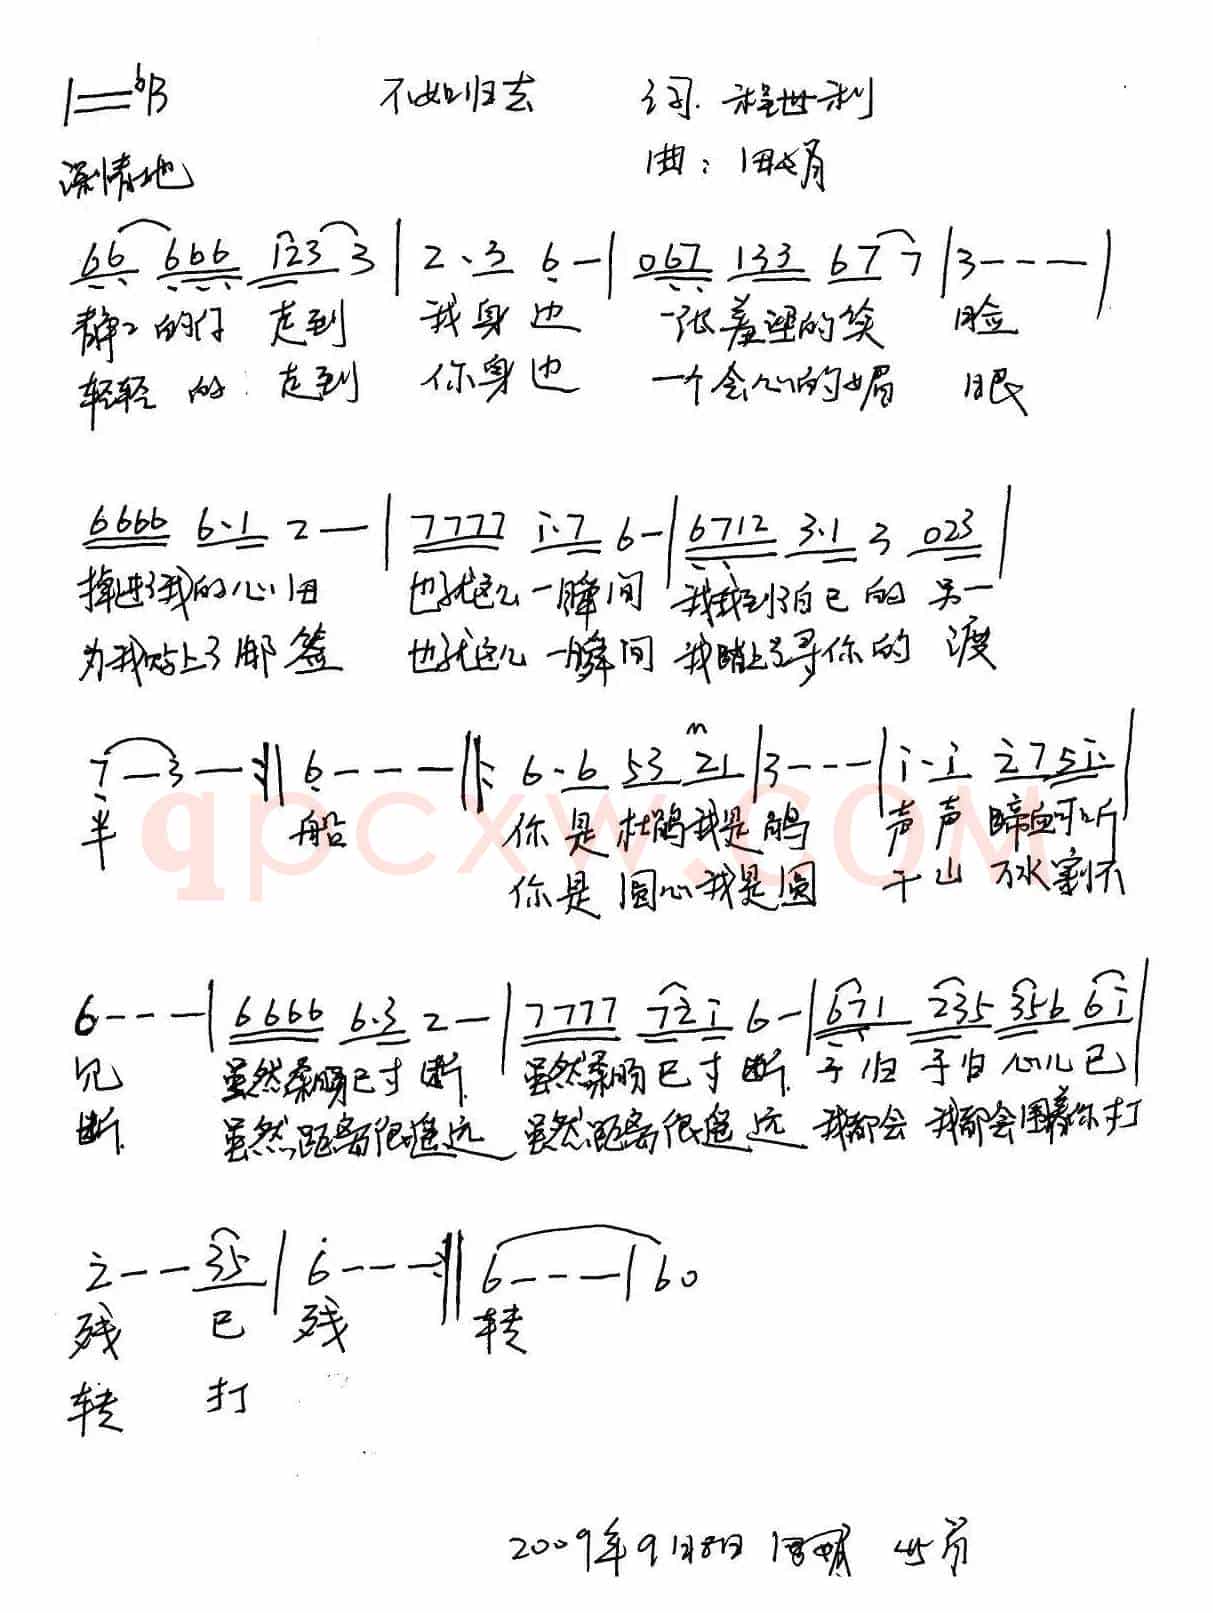 1=♭B 不如归去 词.程世利
深情地 曲：田娟
66 666 i23 3 | 2·3 6— | 067 133 67 7 | 3--- |
静々的你 走到 我身边 一张羞涩的笑 脸
轻轻 的 走到 你身边 一个会心的媚 眼
6666 6·1 2— | 7777 i·7 6- | 6712 3·1 3 023 |
掉进了我的心田 也就这么一瞬间 我找到了自己的 另一
为我贴上了邮签 也就这么一瞬间 我踏上了寻你的 渡
7—3—:‖ 6--- ‖: 6·6 53 21 | 3--- | i·i i75i· |
半 船 你是杜鹃我是鹃 声声 啼血可听
qpcxw.com
你是圆心我是圆 千山 万水割不
6---| 6666 6·3 2— | 7777 72i 6- | 671 235 356 6i |
见 虽然柔肠已寸断 虽然柔肠已寸断 子归 子归 心儿已
断 虽然距离很遥远 虽然距离很遥远 我都会 我都会围着你打
2---35 | 6---:‖ 6---| 60
残 已 残 转
转 打
2009年9月8日